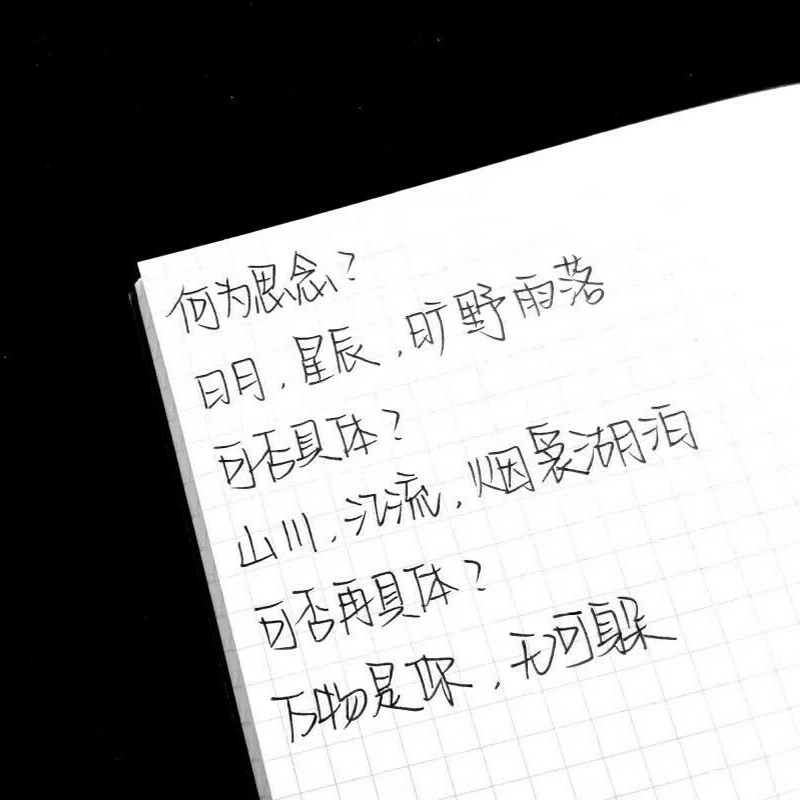 何为思念？
日月，星辰，旷野雨落
可否具体？
山川，江流，烟袅湖泊
可否再具体？
万物是你，无可躲